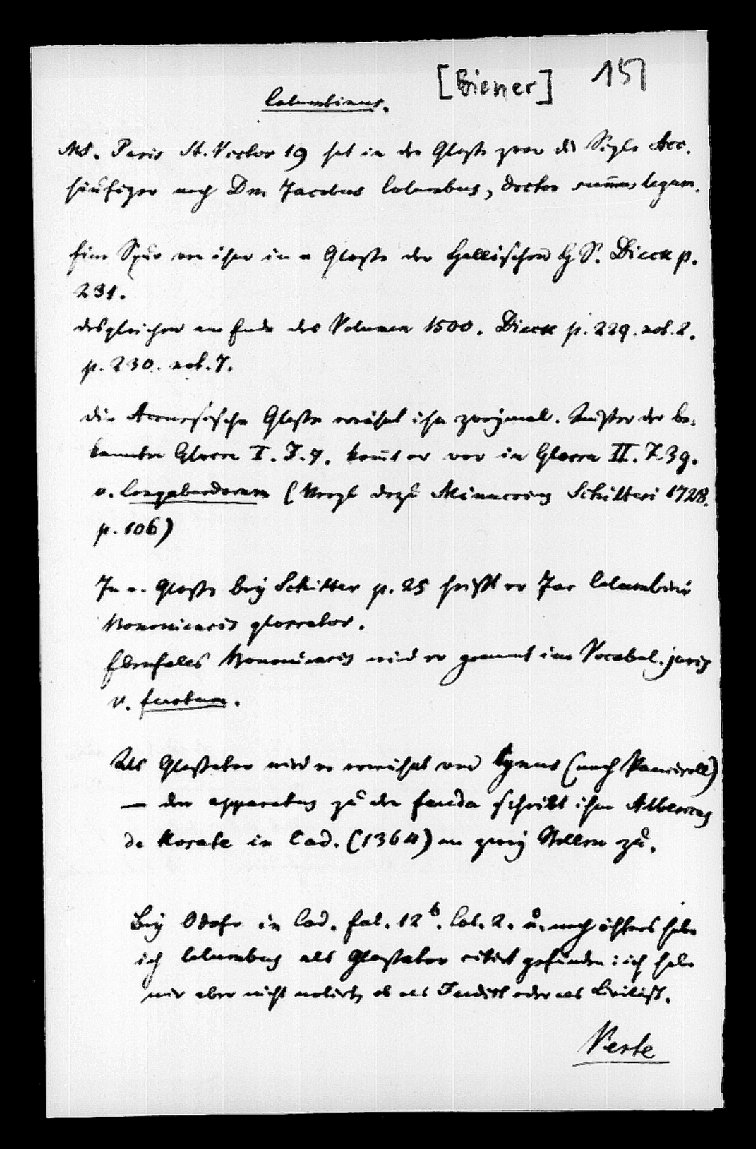 [Biener] 151
Columbinus.
Ms. Paris St. Victor 19 hat in der Glosse zwar die Sigle Acc.
häufiger noch Dm Jacobus Columbus, doctor summus legum.
Eine Spur von ihm in e Glosse der Hallischen HS. Dieck p.
231.
desgleichen am Ende des Volumen 1500. Dieck p. 229. not. 2.
p. 230. not. 7.
die Accursische Glosse erwähnt ihn zweymal. Außer der be-
kannten Glosse I. F. 7. kom̄t er vor in Glosse II. F. 39.
v. Longobardorum (Vergl dazu Schilteri 1728.
p. 106)
In e. Glosse bey Schilter p. 25 heißt er Jac Columbini
glossator.
Ebenfalls wird er genannt im Vocabul. juris
v. feudum.
Als Glossator wird er erwähnt von Cynus (nach Panciroll)
— den apparatus zu den feuda schreibt ihm Albericus
de Rosate in Cod. (1364) an zwey Stellen zu.
Bey Odofr in Cod. fol. 12 b. Col. 2. u. noch öfters habe
ich Columbus als Glossator citirt gefunden: ich habe
mir aber nicht notirt, ob als Feudist oder als Civilist.